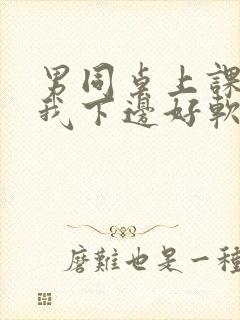 男同桌上課
我下邊好軟
磨難也是一種